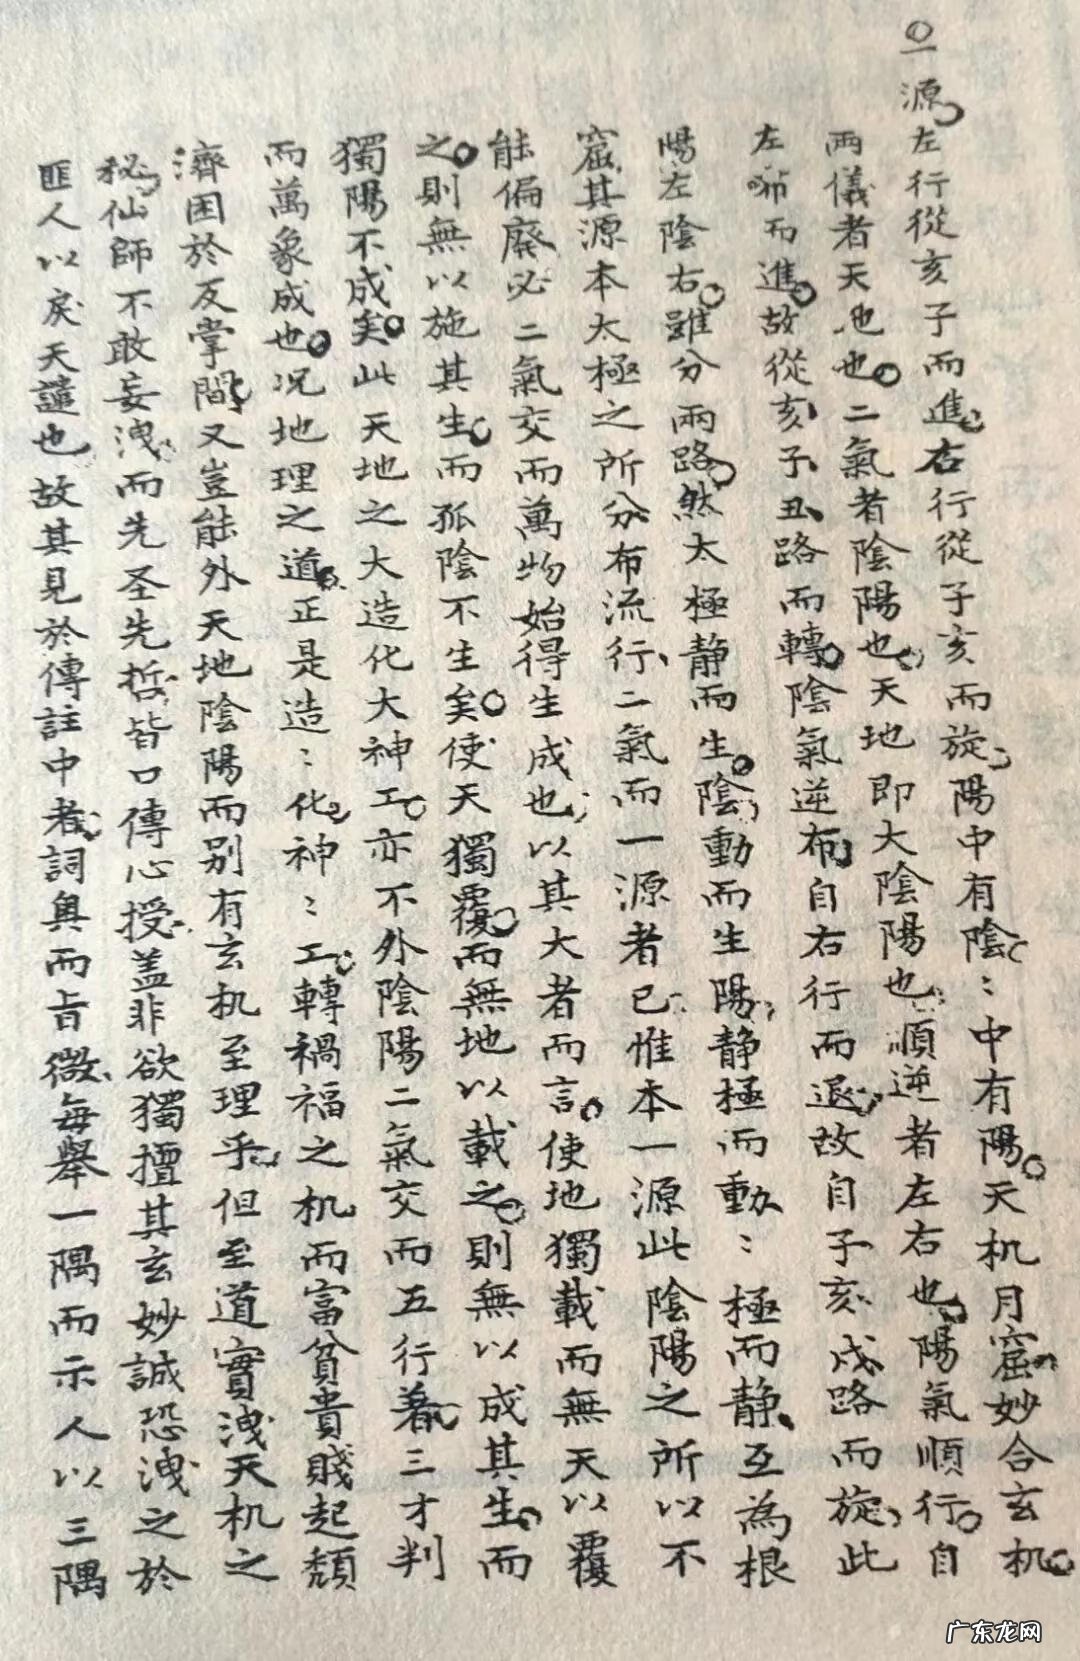 〇一源左行從亥子而進右行從子亥而旋陽中有陰：中有陽天机月窟妙合玄机
兩儀者天地也二氣者陰陽也天地即大陰陽也順逆者左右也陽氣順行自
左佈而進故從亥子丑路而轉陰氣逆布自右行而退故自子亥戌路而旋此
陽左陰右雖分兩路然太極静而生陰動而生陽静極而動：極而静互為根
窟其源本太極之所分布流行二氣而一源者已惟本一源此陰陽之所以不
能偏廢必二氣交而萬物始得生成也以其大者而言使地獨載而無天以覆
之則無以施其生而孤陰不生矣使天獨覆而無地以載之則無以成其生而
獨陽不成矣此天地之大造化大神工亦不外陰陽二氣交而五行著三才判
而萬象成也况地理之道正是造：化神：工轉禍福之机而富貧貴賤起頹
濟困於反掌間又豈能外天地陰陽而别有玄机至理乎但至道實洩天机之
秘仙師不敢妄洩而先圣先哲皆口傳心授盖非欲獨擅其玄妙誠恐洩之於
匪人以戾天譴也故其見於傳註中者詞奥而旨微每舉一隅而示人以三隅
广东龙网